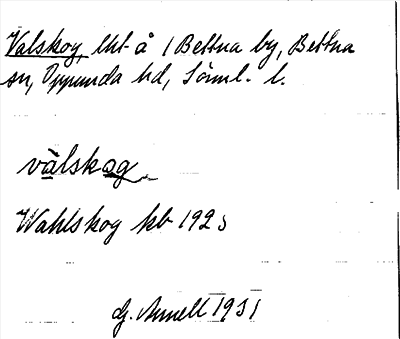 Valskog, lht å 1 Bettna by, Bettna
sn, Oppunda hd, Söml. l.
vàlskog
Wahlskog kb 192 s
G. Arnell 1931